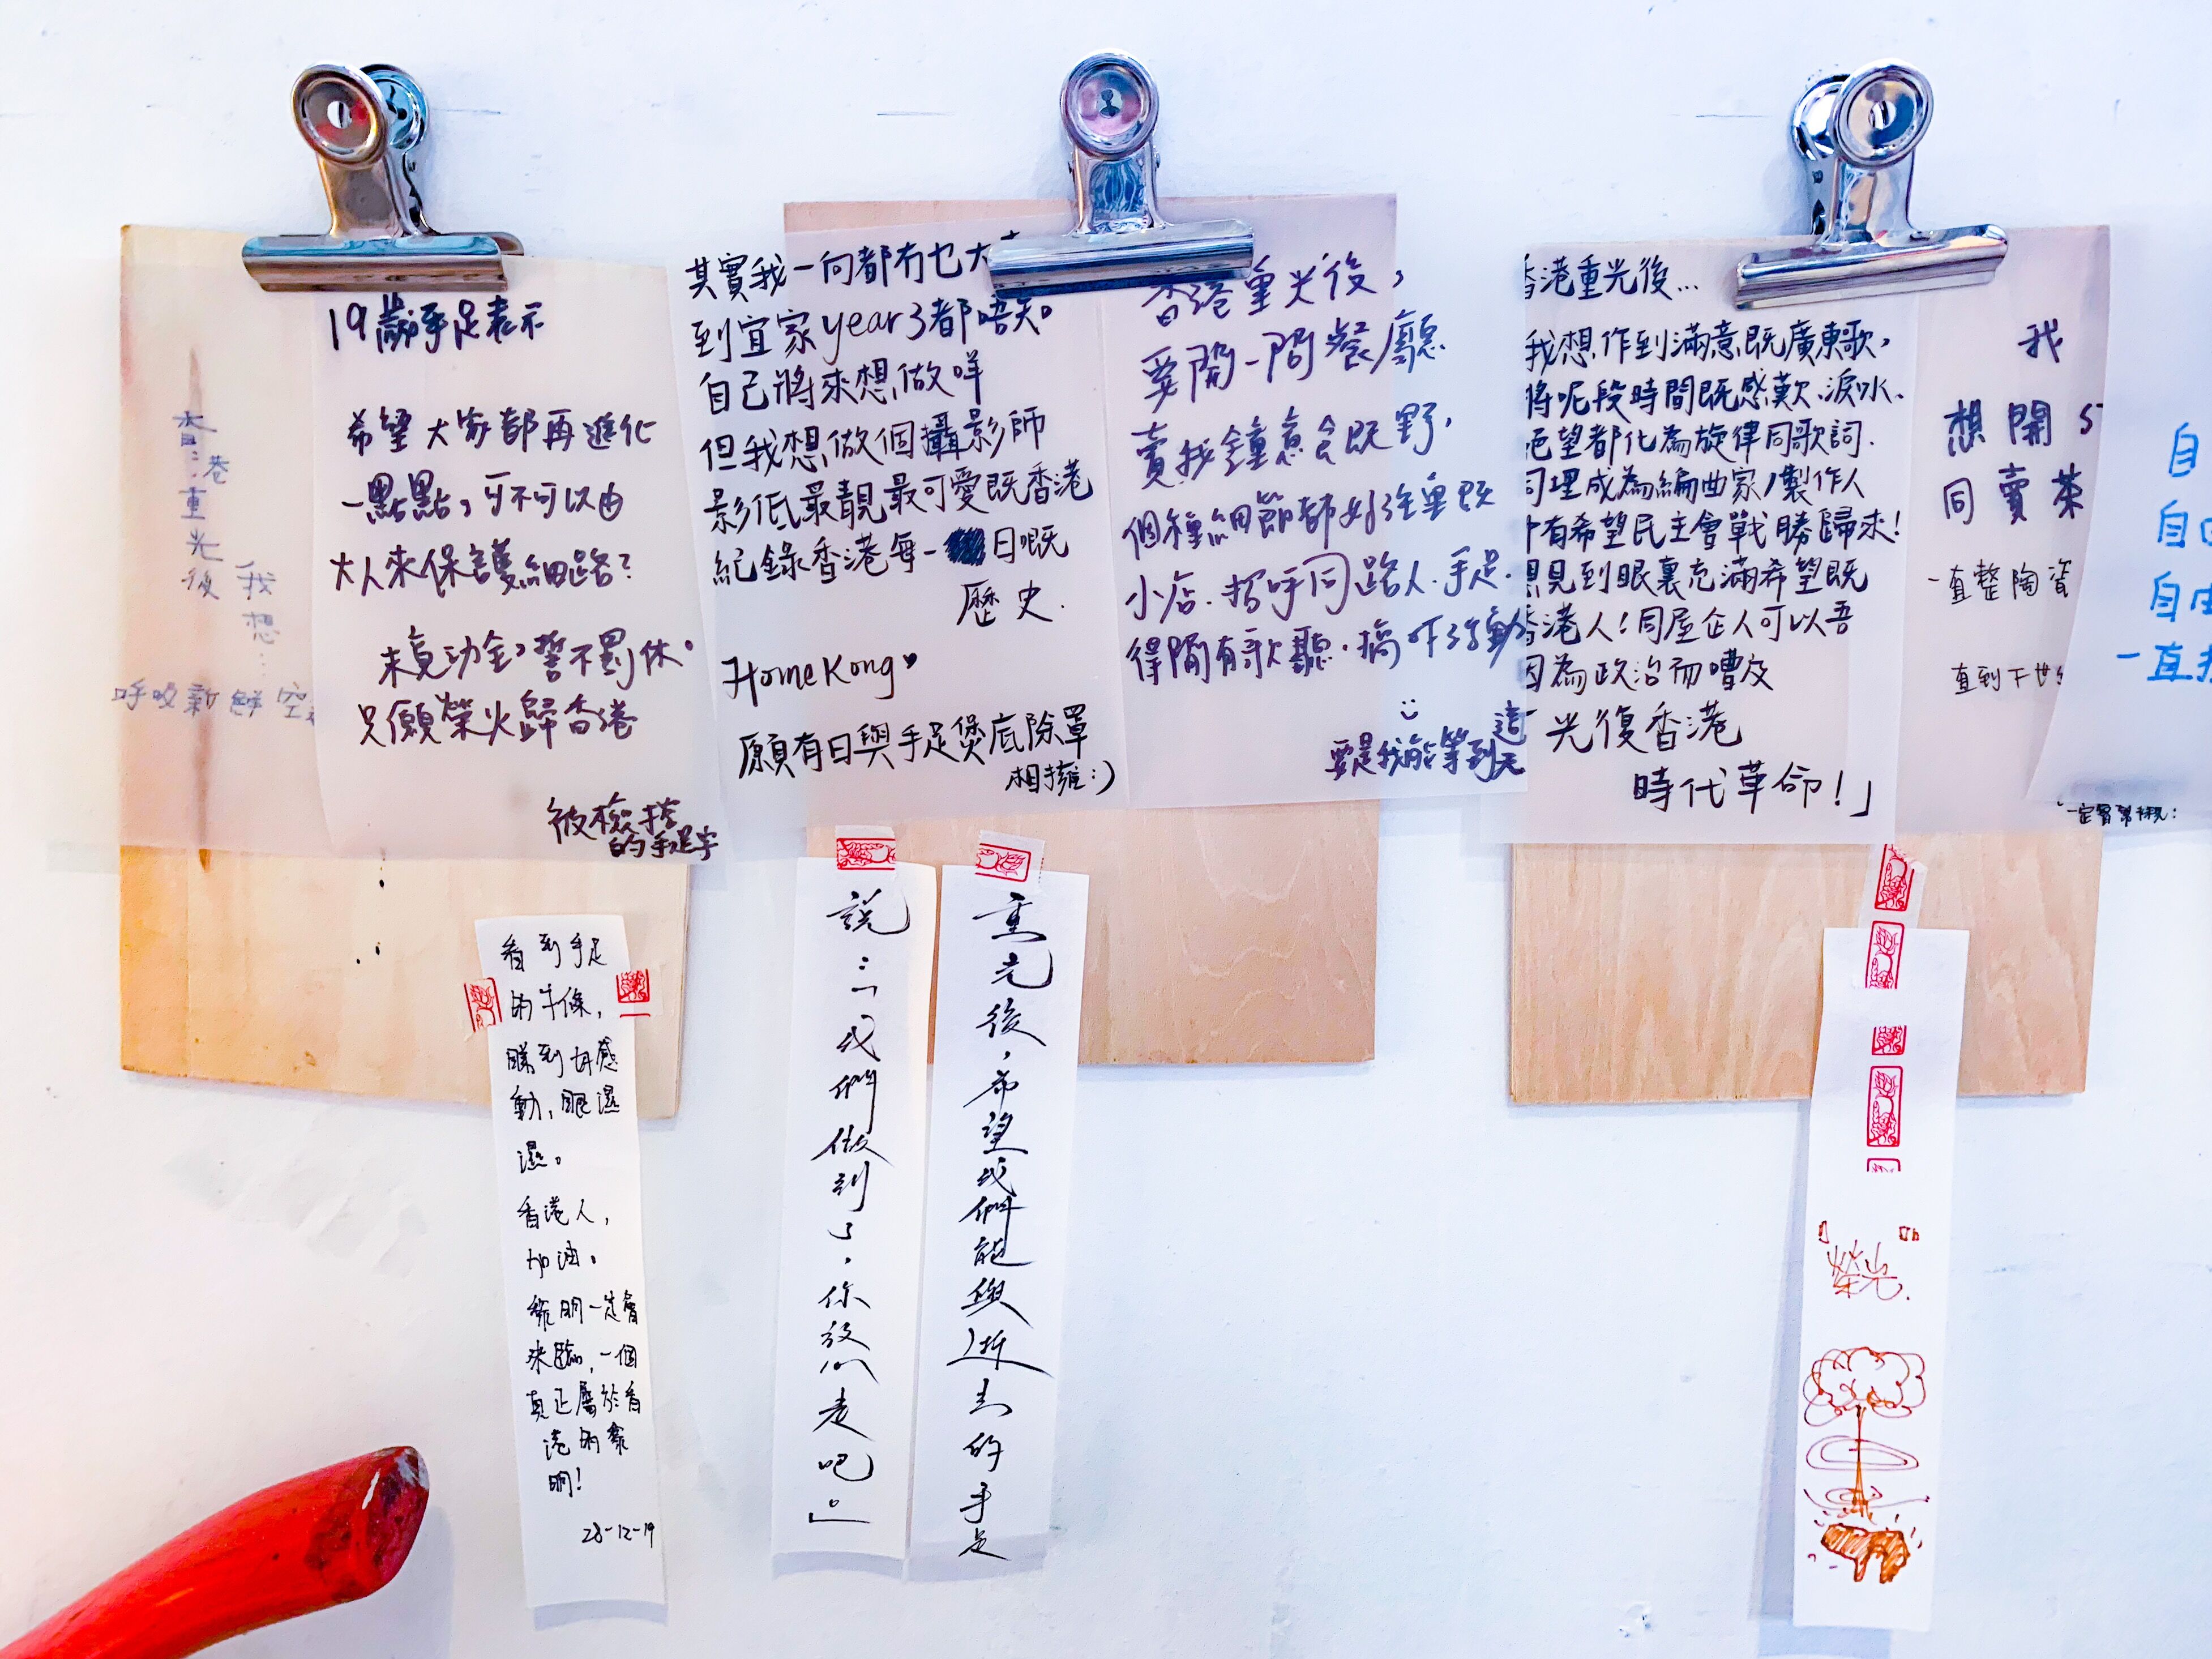 香港重光後
我想…
呼吸新鮮空
19歲手足表示
希望大家都再進化
一點點，可不可以由
大人來保護細路？
未竟功全，誓不罷休。
只願榮火歸香港
被檢控
的手足字
其實我一向都冇乜大
到宜家year 3都唔知。
自己將來想做咩
但我想做個攝影師
影低最靚最可愛既香港
紀錄香港每一日嘅
歷史.
HomeKong♥
願有日與手足煲底除罩
相擁:)
香港重光後，
要開一間餐廳
賣我鐘意食既野，
個種細節都好
小店.招呼同路人.手足.
得閒有歌聽.搞吓活動
要是我能等到這天
香港重光後…
我想作到滿意既廣東歌，
將呢段時間既感歎、淚水、
絕望都化為旋律同歌詞.
可埋成為編曲家/製作人
有希望民主會戰勝歸來!
想見到眼裏充滿希望既
香港人!同屋企人可以吾
因為政治而嘈及
光復香港
時代革命!」
我
想開
同賣茶
一直整陶瓷
直到下世
自
自由
自由
一直
看到手足
的字條,
睇到好感
動,眼濕
濕。
香港人,
加油。
黎明一定會
來臨,一個
真正屬於香
港的黎
明!
28-12-19
重光後，希望我們能與逝去的手足
說：「我們做到了，你放心走吧。」
「榮光」